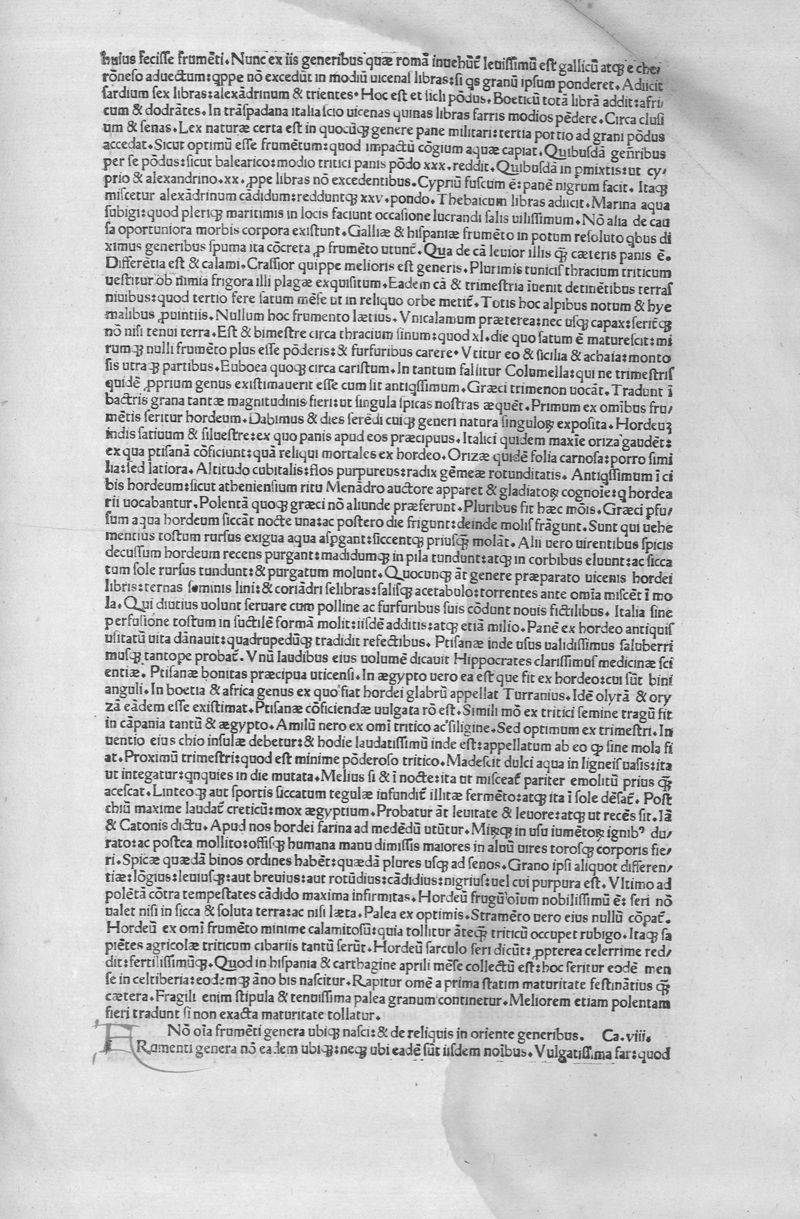 huius fecisse frumēti. Nunc ex iis generibus quæ romā inuehūt leuissimū est gallicū atq; e cher
rōneso aduectum: qppe nō excedūt in modiū uicenas libras: si qs granū ipsum ponderet. Adiicit
sardium sex libras: alexādrinum & trientes. Hoc est et sicli pōdus. Boeticū totā librā addit: afri
cum & dodrātes. In trāspadana italia scio uicenas quinas libras farris modios pēdere. Circa clusi
um & senas. Lex naturæ certa est in quocūq; genere pane militari: tertia portio ad grani pōdus
accedat. Sicut optimū esse frumētum: quod impactū cōgium aquæ capiat. Quibusdā generibus
per se pōdus: sicut balearico: modio tritici panis pōdo xxx. reddit. Quibusdā in pmixtis: ut cy,
prio & alexandrino. xx. ppe libras nō excedentibus. Cypriū fuscum ē: panē nigrum facit. Itaq;
miscetur alexādrinum cādidum: redduntq; xxv. pondo. Thebaicum libras adiicit. Marina aqua
subigi: quod pleriq; maritimis in locis faciunt occasione lucrandi salis uilissimum. Nō alia de cau
sa oportuniora morbis corpora existunt. Galliæ & hispaniæ frumēto in potum resoluto qbus di
ximus generibus spuma ita cōcreta p frumēto utunt̄. Qua de cā leuior illis q̄; cæteris panis ē.
Differētia est & calami. Crassior quippe melioris est generis. Plurimis tunicis thracium triticum
uestitur ob nimia frigora illi plagæ exquisitum. Eadem cā & trimestria iuenit detinētibus terras
niuibus: quod tertio fere satum mēse ut in reliquo orbe metit̄. Totis hoc alpibus notum & hye
malibus puintiis. Nullum hoc frumento lætius. Vnicalamum præterea: nec usq; capax: serit̄q;
nō nisi tenui terra. Est & bimestre circa thracium sinum: quod xl. die quo satum ē maturescit: mi
rumq; nulli frumēto plus esse pōderis: & furfuribus carere. Vtitur eo & sicilia & achaia: monto
sis utraq; partibus. Euboea quoq; circa caristum. In tantum fallitur Columella: qui ne trimestris
quidē pprium genus existimauerit esse cum sit antiqssimum. Græci trimenon uocāt. Tradunt ī
bactris grana tantæ magnitudinis fieri: ut singula spicas nostras æquēt. Primum ex omibus fru,
mētis seritur hordeum. Dabimus & dies serēdi cuiq; generi natura singuloꝝ exposita. Hordeuꝫ
indis satiuum & siluestre: ex quo panis apud eos præcipuus. Italici quidem maxīe oriza gaudēt:
ex qua ptisanā cōficiunt: quā reliqui mortales ex hordeo. Orizæ quidē folia carnosa: porro simi
lia: sed latiora. Altitudo cubitalis: flos purpureus: radix gēmeæ rotunditatis. Antiqssimum ī ci
bis hordeum: sicut atheniensium ritu Menādro auctore apparet & gladiatoꝝ cognoīe: q hordea
rii uocabantur. Polentā quoq; græci nō aliunde præferunt. Pluribus fit hæc mōis. Græci pfu,
sum aqua hordeum siccāt nocte una: ac postero die frigunt: deinde molis frāgunt. Sunt qui uehe
mentius tostum rursus exigua aqua aspgant: siccentq; priusq̄; molāt. Alii uero uirentibus spicis
decussum hordeum recens purgant: madidumq; in pila tundunt: atq; in corbibus eluunt: ac sicca
tum sole rursus tundunt: & purgatum molunt. Quocunq; āt genere præparato uicenis hordei
libris: ternas seminis lini: & coriādri selibras: salisq; acetabulo: torrentes ante omīa miscēt ī mo
la. Qui diutius uolunt seruare cum polline ac furfuribus suis cōdunt nouis fictilibus. Italia sine
perfusione tostum in sutilē formā molit: iisdē additis: atq; etiā milio. Panē ex hordeo antiquis
usitatū uita dānauit: quadrupedūq; tradidit refectibus. Ptisanæ inde usus ualidissimus saluberri
musq; tantope probat̄. Vnū laudibus eius uolumē dicauit Hippocrates clarissimus medicinæ sci
entiæ. Ptisanæ bonitas præcipua uticensi. In ægypto uero ea est que fit ex hordeo: cui sūt bini
anguli. In boetia & africa genus ex quo fiat hordei glabrū appellat Turranius. Idē olyrā & ory
zā eādem esse existimat. Ptisanæ cōficiendæ uulgata rō est. Simili mō ex tritici semine tragū fit
in cāpania tantū & ægypto. Amilū uero ex omi tritico ac siligine. Sed optimum ex trimestri. In
uentio eius chio insulæ debetur: & hodie laudatissimū inde est: appellatum ab eo q̄ sine mola fi
at. Proximū trimestri: quod est minime pōderoso tritico. Madescit dulci aqua in ligneis uasis: ita
ut integatur: qnquies in die mutata. Melius si & ī nocte: ita ut misceat̄ pariter emolitū prius q̄;
acescat. Linteoq; aut sportis siccatum tegulæ infundit̄ illitæ fermēto: atq; ita ī sole dēsat̄. Post
chiū maxime laudat̄ creticū: mox ægyptium. Probatur āt leuitate & leuore: atq; ut recēs sit. Iā
& Catonis dictu. Apud nos hordei farina ad medēdū utūtur. Miꝝq; in usu iumētoꝝ ignibꝰ du,
rato: ac postea mollito: offisq; humana manu dimissis maiores in aluū uires torosq; corporis fie,
ri. Spicæ quædā binos ordines habēt: quædā plures usq; ad senos. Grano ipsi aliquot differen,
tiæ: lōgius: leuiusq;: aut breuius: aut rotūdius: cādidius: nigrius: uel cui purpura est. Vltimo ad
polētā cōtra tempestates cādido maxima infirmitas. Hordeū frugū oium nobilissimū ē: seri nō
ualet nisi in sicca & soluta terra: ac nisi læta. Palea ex optimis. Stramēto uero eius nullū cōpat̄.
Hordeū ex omi frumēto minime calamitosū: quia tollitur āteq̄; triticū occupet rubigo. Itaq; sa
piētes agricolæ triticum cibariis tantū serūt. Hordeū sarculo seri dicūt: ppterea celerrime red,
dit: fertilissimūq;. Quod in hispania & carthagine aprili mēse collectū est: hoc seritur eodē men
se in celtiberia: eodemq; āno bis nascitur. Rapitur omē a prima statim maturitate festinātius q̄;
cætera. Fragili enim stipula & tenuissima palea granum continetur. Meliorem etiam polentam
fieri tradunt si non exacta maturitate tollatur.
Nō oīa frumēti genera ubiq; nasci: & de reliquis in oriente generibus. Ca. viii.
FRumenti genera nō eadem ubiq;: neq; ubi eadē sūt iisdem noībus. Vulgatissima far: quod